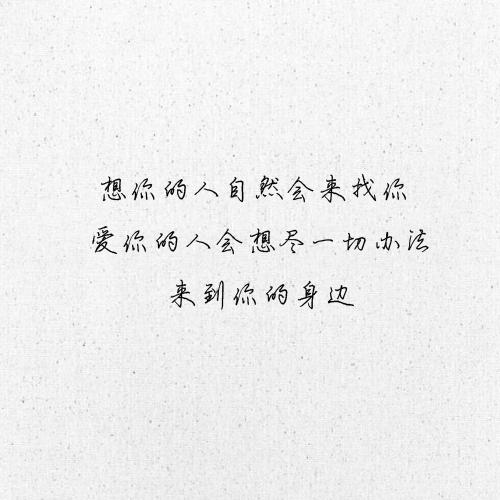 想你的人自然会来找你
爱你的人会想尽一切办法
来到你的身边